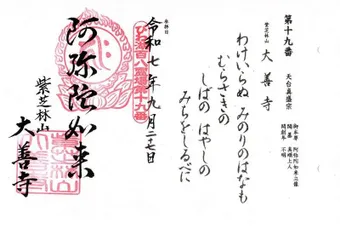 第十九番 天台真盛宗
御本尊 阿弥陀如来立像
開基 真盛上人
開創年 不明
紫芝林山 大善寺
わけいらぬ みのりのはなも
むらさきの
しばの はやしの
みちをしるべに
参拝日
令和七年九月二十七日
びわ湖百八霊場第十九番
阿弥陀如来
紫芝林山
大善寺